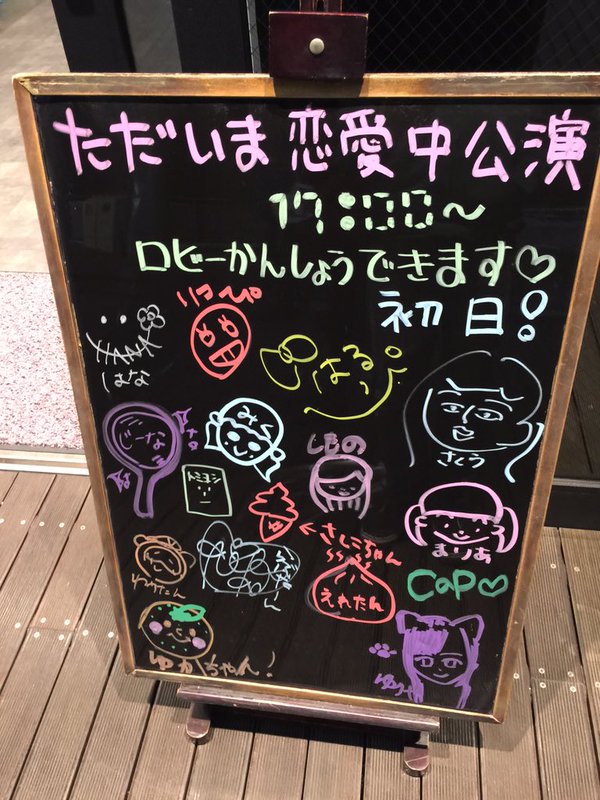 ただいま恋愛中公演
17:00～
ロビーかんしょうできます♡
初日!
りっぴ
はな
はるっぴ
さくら
みく
しの
トミヨシ
まりあ
←さしこちゃん
えれたん
Cap♡
ゆかちゃん!